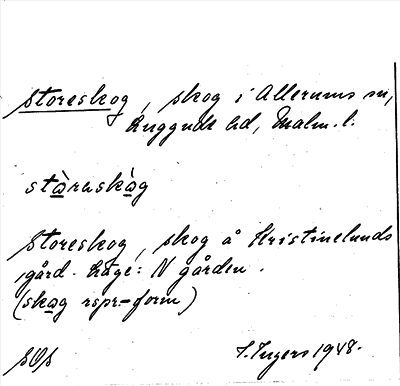 Storeskog, skog i Allerums sn,
Luggude hd, Malm. l.
stàraskàg
Storeskog, skog å Kristinelunds
gård. Läge: N gården.
(skag rspr.-form)
I. Ingers 1948.